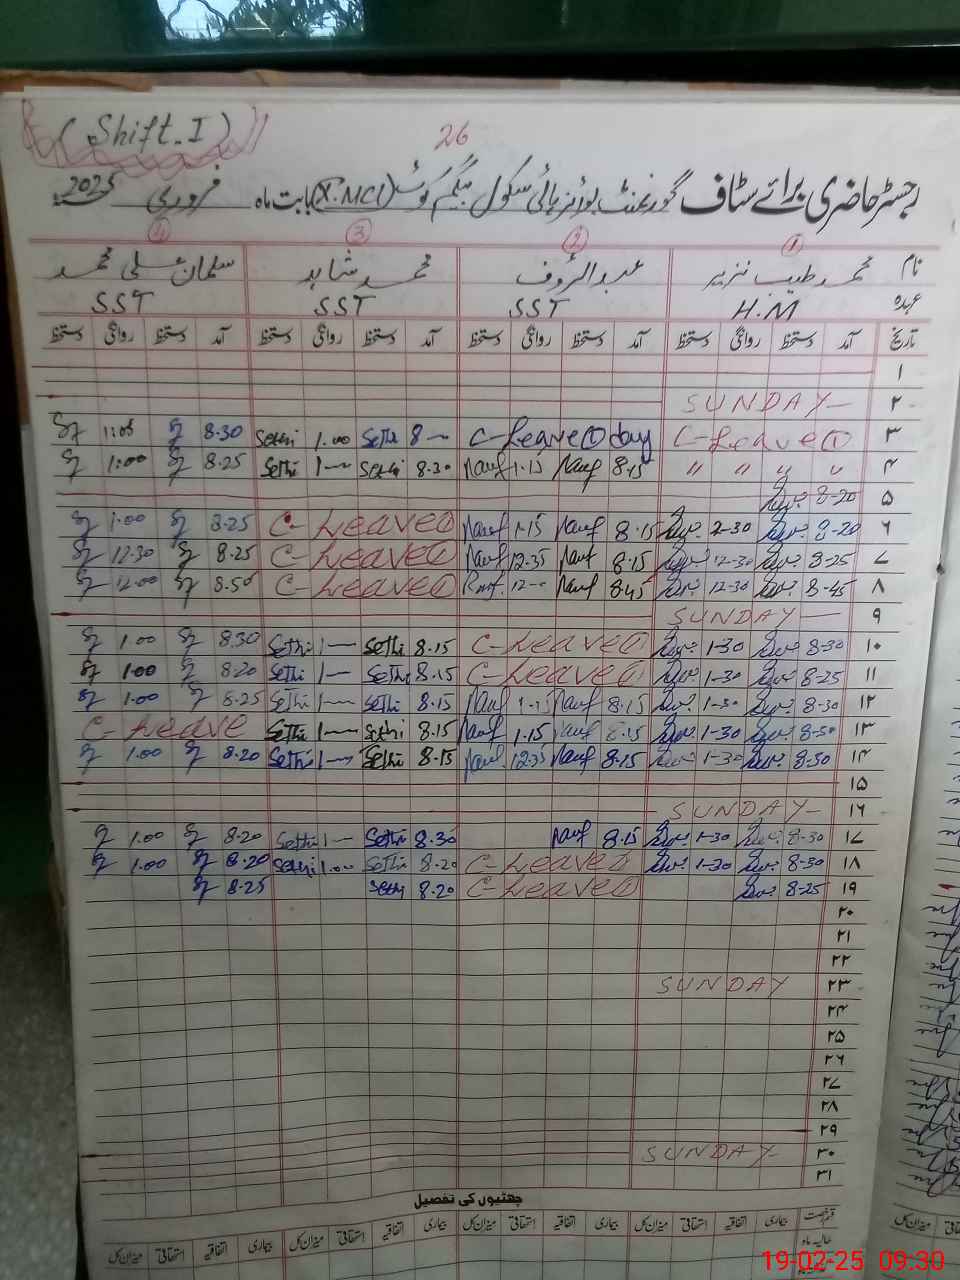 (Shift-I)
26
رجسٹر حاضری برائے سٹاف گورنمنٹ بوائز ہائی سکول بیگم کوٹ (X.MCL) بابت ماہ فروری 2025
① ② ③ ④
نام محمد طیب نزیر عبدالرؤف محمد شاہد سلمان علی محمد
عہدہ H.M SST SST SST
تاریخ آمد دستخط روانگی دستخط آمد دستخط روانگی دستخط آمد دستخط روانگی دستخط آمد دستخط روانگی دستخط
۱
۲ SUNDAY
۳ C-Leave ① C-Leave ① day 8- Sethi 1.00 Sethi 8.30 1:05
۴ " " " " 8.15 Rauf 1.15 Rauf 8.30 Sethi 1- Sethi 8.25 1:00
۵ 8-20
۶ 8-20 2-30 8.15 Rauf 1-15 Rauf C-Leave ① 8-25 1.00
۷ 8-25 12-30 8.15 Rauf 12.35 Rauf C-Leave ① 8.25 12.30
۸ 8-45 12-30 8.45 Rauf 12- C-Leave ① 8.50 12.00
۹ SUNDAY
۱۰ 8-30 1-30 C-Leave ① 8.15 Sethi 1- Sethi 8.30 1.00
۱۱ 8-25 1-30 C-Leave ① 8.15 Sethi 1- Sethi 8.20 1.00
۱۲ 8-30 1-30 8.15 Rauf 1-15 Rauf 8.15 Sethi 1- Sethi 8.25 1.00
۱۳ 8-30 1-30 8.15 Rauf 1.15 Rauf 8.15 Sethi 1- Sethi C-Leave
۱۴ 8-30 1-30 8.15 Rauf 12.35 Rauf 8.15 Sethi 1- Sethi 8.20 1.00
۱۵
۱۶ SUNDAY
۱۷ 8-30 1-30 8.15 Rauf 8.30 Sethi 1- Sethi 8.20 1.00
۱۸ 8-30 1-30 C-Leave ① 8.20 Sethi 1.00 Sethi 8.20 1.00
۱۹ 8-25 C-Leave ① 8.20 Sethi 8.25
۲۰
۲۱
۲۲
۲۳ SUNDAY
۲۴
۲۵
۲۶
۲۷
۲۸
۲۹
۳۰ SUNDAY
۳۱
چھٹیوں کی تفصیل
قسم رخصت بیماری اتفاقیہ استحقاقی میزان کل بیماری اتفاقیہ استحقاقی میزان کل بیماری اتفاقیہ استحقاقی میزان کل بیماری اتفاقیہ استحقاقی میزان کل
حالیہ ماہ
19-02-25 09:30